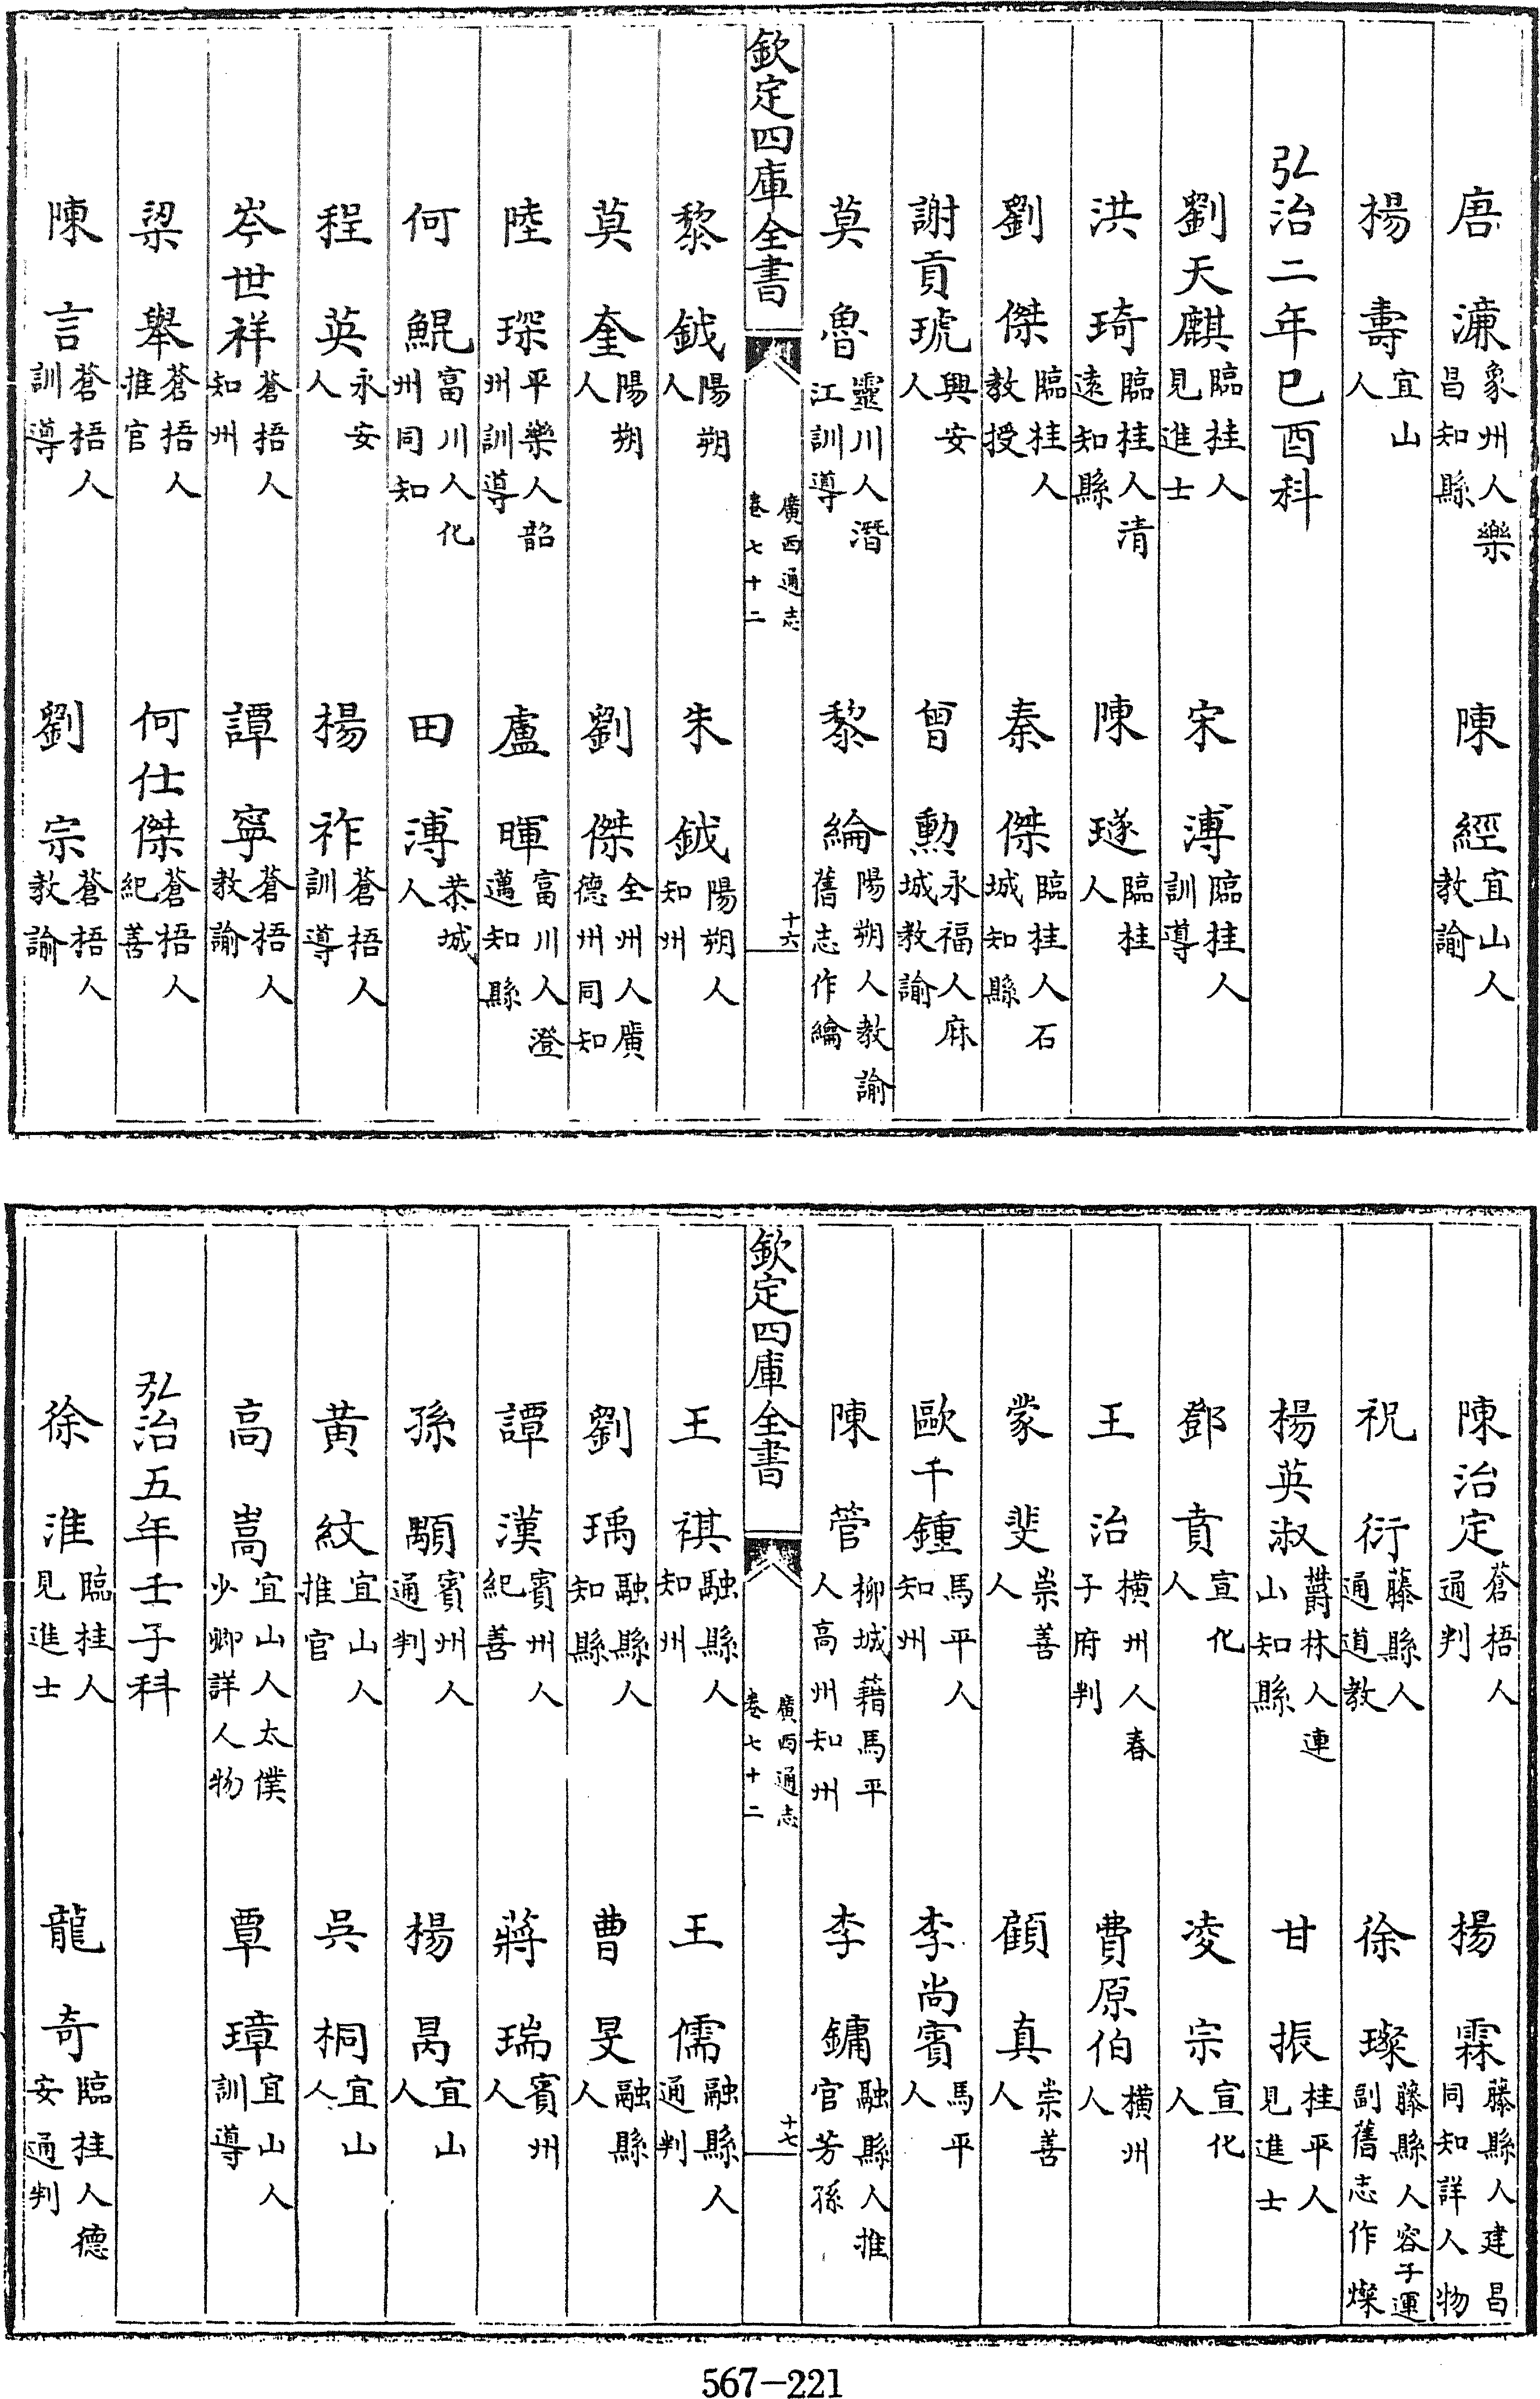 唐濂象州人樂昌知縣　陳經宜山人教諭
楊壽宜山人
弘治二年巳酉科
劉天麒臨桂人見進士　宋溥臨桂人訓導
洪琦臨桂人清遠知縣　陳璲臨桂人
劉傑臨桂人教授　秦傑臨桂人石城知縣
謝貢琥興安人　曾勲永福人麻城教諭
莫魯靈川人潛江訓導　黎綸陽朔人教諭舊志作綸
欽定四庫全書　廣西通志卷七十二　十六
黎鉞陽朔人　朱鉞陽朔人知州
莫奎陽朔人　劉傑全州人廣德州同知
陸琛平樂人韶州訓導　盧暉富川人澄邁知縣
何鯤富川人化州同知　田溥恭城人
程英永安人　楊祚蒼梧人訓導
岑世祥蒼梧人知州　譚寧蒼梧人教諭
梁舉蒼梧人推官　何仕傑蒼梧人紀善
陳言蒼梧人訓導　劉宗蒼梧人教諭
陳治定蒼梧人通判　楊霖藤縣人建昌同知詳人物
祝衍藤縣人通道教　徐璨藤縣人容子運副舊志作燦
楊英淑欝林人連山知縣　甘振桂平人見進士
鄧賁宣化人　凌宗宣化人
王治橫州人春子府判　費原伯橫州人
蒙斐崇善人　顧真崇善人
歐千鍾馬平人知州　李尚賓馬平人
陳管柳城籍馬平人高州知州　李鏞融縣人推官芳孫
欽定四庫全書　廣西通志卷七十二　十七
王祺融縣人知州　王儒融縣人通判
劉瑀融縣人知縣　曹旻融縣人
譚漢賓州人紀善　蔣瑞賓州人
孫顒賓州人通判　楊昺宜山人
黃紋宜山人推官　吳桐宜山人
高嵩宜山人太僕少卿詳人物　覃璋宜山人訓導
弘治五年壬子科
徐淮臨桂人見進士　龍奇臨桂人德安通判
567-221